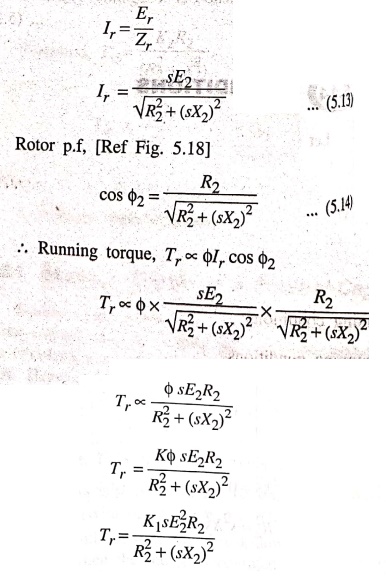 I_r = E_r / Z_r
I_r = sE_2 / √(R_2^2 + (sX_2)^2) ... (5.13)
Rotor p.f, [Ref Fig. 5.18]
cos ϕ_2 = R_2 / √(R_2^2 + (sX_2)^2) ... (5.14)
∴ Running torque, T_r ∝ ϕI_r cos ϕ_2
T_r ∝ ϕ × sE_2 / √(R_2^2 + (sX_2)^2) × R_2 / √(R_2^2 + (sX_2)^2)
T_r ∝ ϕ sE_2R_2 / R_2^2 + (sX_2)^2
T_r = Kϕ sE_2R_2 / R_2^2 + (sX_2)^2
T_r = K_1sE_2^2R_2 / R_2^2 + (sX_2)^2